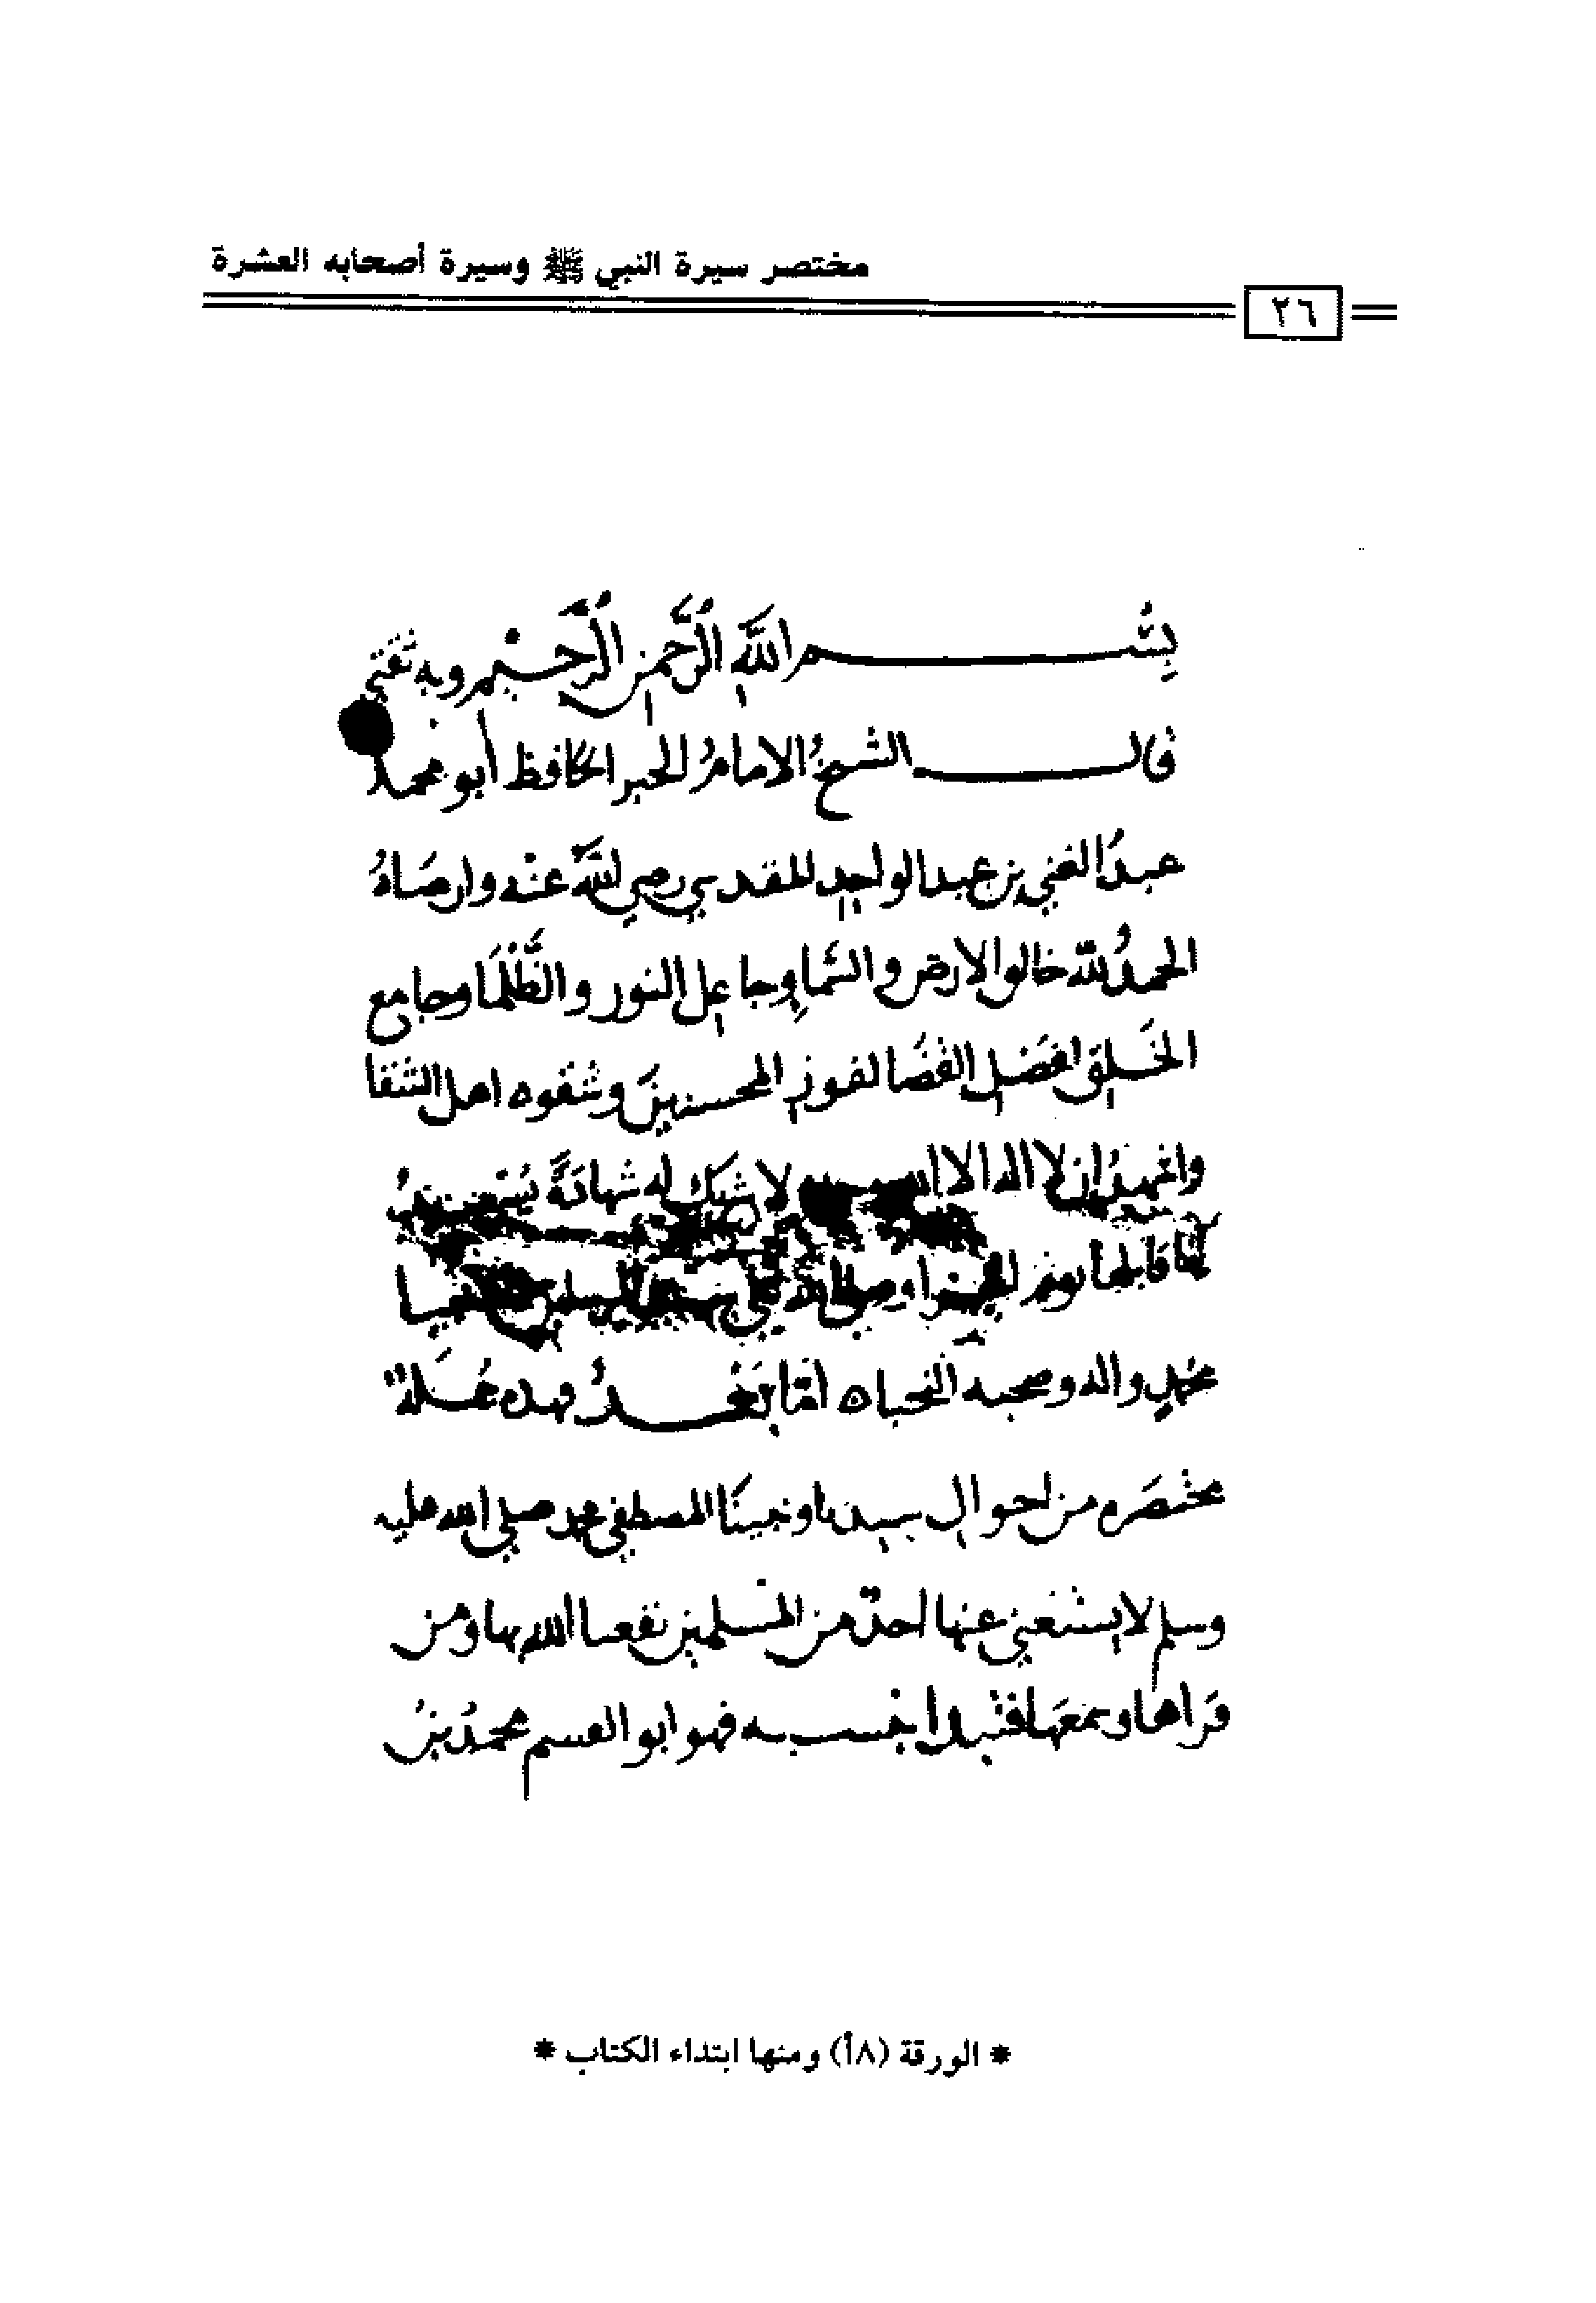 مختصر سيرة النبي ﷺ وسيرة أصحابه العشرة
٢٦
بِسْم اللَّهِ الرَّحْمَنِ الرَّحِيْمِ وبه ثقتي
قال الشيخُ الامامُ الحبر الحافظ أبو محمد
عبدُ الغني بن عبد الواحِدِ المقدسي رضي اللَّه عنْه وارضَاهُ
الحمدُ لله خالق الارض والسَّماءِ وجاعِل النور والظَّلْمَا وجامع
الخَلِقِ لفَصْلِ القَضَا لفوزِ المحسنينَ وشقوه اهل الشقا
واشهدُ ان لا اله الا لا شريك له شهادَةً
وصلى الله على المرسلين
محمدٍ واله وصحبه النُّجباه امَّا بَعْدُ فهذه جُملَةٌ
مختصَره من احوالِ سيدِنا ونبينَا المصطفى محمد صلى الله عليه
وسلم لا يستغني عنها احدٌ من المسْلمين نفعنا الله بها ومن
قَراها وسمعَها فنبداُ بنسبه فهو ابو القسم محمدُ بنُ
* الورقة (٨أ) ومنها ابتداء الكتاب *